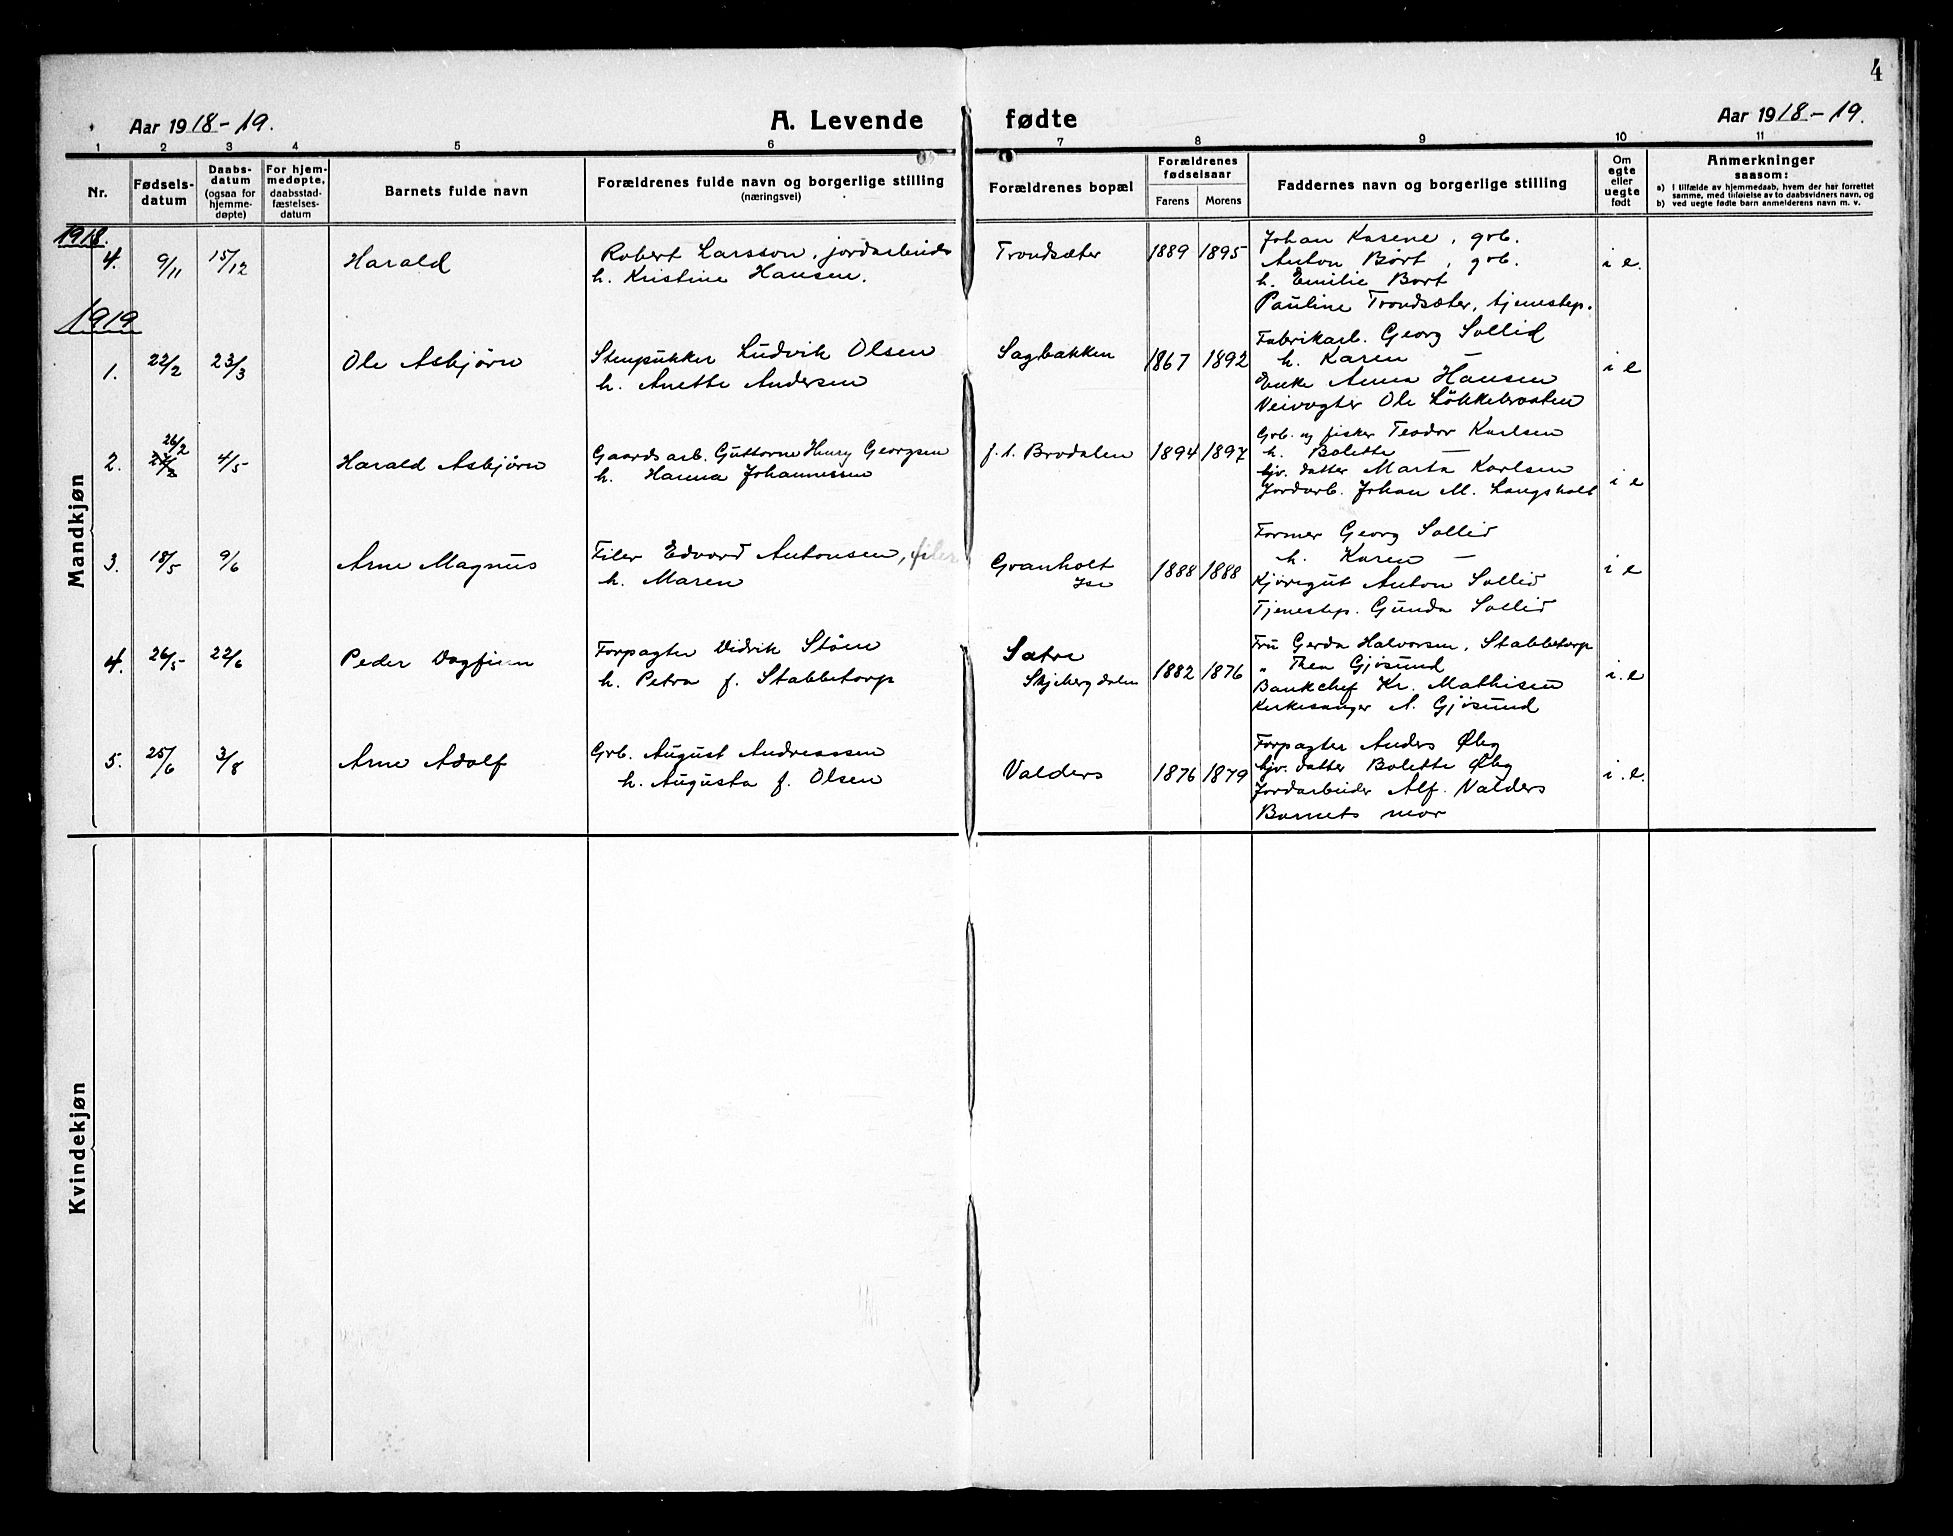 4
Aar 1918-19.
A. Levende fødte
Aar 1918-19.
1 2 3 4 5 6 7 8 9 10 11
Nr.
Fødsels-
datum
Daabs-
datum
(ogsaa for
hjemme-
døpte)
For hjem-
medøpte,
daabsstad-
fæstelses-
datum
Barnets fulde navn
Forældrenes fulde navn og borgerlige stilling
(næringsvei)
Forældrenes bopæl
Forældrenes
fødselsaar
Farens Morens
Faddernes navn og borgerlige stilling
Om
ægte
eller
uegte
født
Anmerkninger
saasom:
a) I tilfælde av hjemmedaab, hvem der har forrettet
samme, med tilføielse av to daabsvidners navn, og
b) ved uegte fødte barn anmelderens navn m. v.
Mandkjøn
1918.
4. 9/11 15/12 Harald
Robert Larsson, jordarbeider
h. Kristine Hansen.
Trondsæter 1889 1895
Johan Kasene, grb.
Anton Børt, grb.
h. Emilie Bort
Pauline Trondsæter, tjenestep.
i e.
1919
1. 22/2 23/3 Ole Asbjørn
Stenpukker Ludvik Olsen
h. Anette Andersen
Sagbakken 1867 1892
Fabrikarb. Georg Sollid
h. Karen —
Enke Anna Hansen
Veivogter Ole Løkkebraaten
i e
2. 26/2 4/5 Harald Asbjørn
Gaardsarb. Guttorm Henry Georgsen
h. Hanna Johannessen
f. t. Brodalen 1894 1897
Grb. og fisker Teodor Karlsen
h. Bolette —
hjv. datter Marta Karlsen
Jordarb. Johan M. Langsholt
i e
3. 18/5 9/6 Arne Magnus
Filer Edvard Antonsen, filer
h. Maren
Granholt
Ise
1888 1888
Former Georg Sollid
h. Karen —
Kjøregut Anton Sollid
Tjenestep. Gunda Sollid
i e
4. 26/5 22/6 Peder Dagfinn
Forpagter Didrik Støen
h. Petra f. Stabbetorp
Sætre
Skjebergdalen
1882 1876
Fru Gerda Halvorsen, Stabbetorp
" Thea Gjøsund
Bankchef Kr. Mathisen
Kirkesanger A. Gjøsund
i. e
5. 25/6 3/8 Arne Adolf
Grb. August Andreassen
h. Augusta f. Olsen
Valders 1876 1879
Forpagter Anders Øby
hjv. datter Bolette Øby
Jordarbeider Alf. Valders
Barnets mor
i. e.
Kvindekjøn